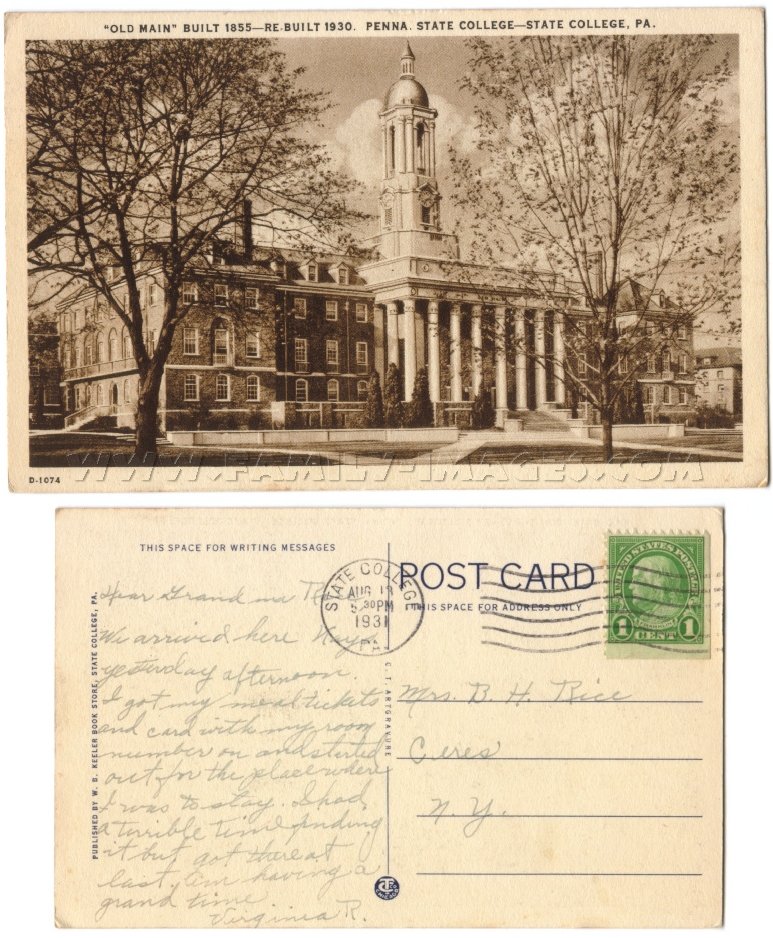 "OLD MAIN" BUILT 1855—RE-BUILT 1930. PENNA. STATE COLLEGE—STATE COLLEGE, PA.
WWW.FAMILY-IMAGES.COM
D-1074
THIS SPACE FOR WRITING MESSAGES
POST CARD
THIS SPACE FOR ADDRESS ONLY
STATE COLLEGE
AUG 13
5:30PM
1931
PA
UNITED STATES POSTAGE
FRANKLIN
1 CENT 1
PUBLISHED BY W. B. KEELER BOOK STORE, STATE COLLEGE, PA.
C. T. ARTGRAVURE
Dear Grandma
We arrived here
yesterday afternoon.
I got my mealtickets
and card with my room
number on and started
out for the place where
I was to stay. I had
a terrible time finding
it but got there at
last. Am having a
grand time.
Virginia R.
Mrs. B. H. Rice
Ceres
N. Y.